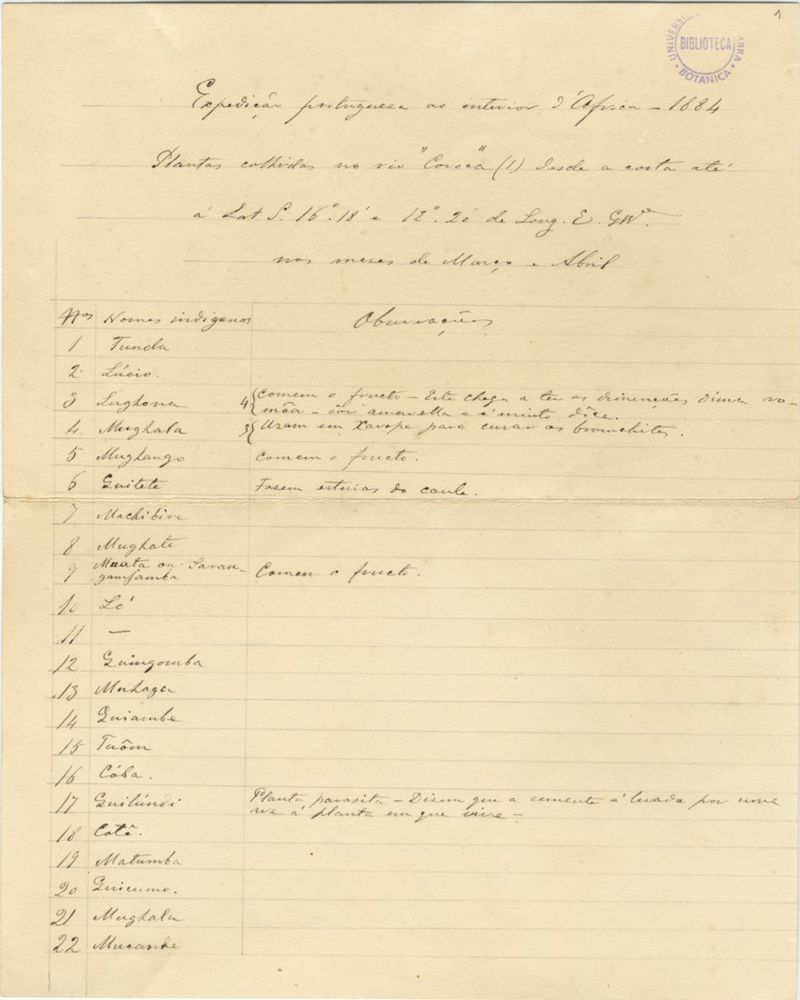 1
UNIVERSI BRA
BIBLIOTECA
BOTANICA
Expedição portugueza ao interior d'Africa – 1884
Plantas colhidas no rio "Coroca" (1) desde a costa até
á Lat S. 16º.18' e 12º.20' de Long. E. GWe.
nos meses de Março e Abril
Nos Nomes indigenas Observações
1 Tunda
2 Lúcio.
3 Lughona 4 { Comem o fructo – Este chega a ter as dimenções d'uma ro-
mãa – côr amarella e é muito dôce.
4 Mughala 3 { Uzam em xarope para curar as bronchites.
5 Mughango Comem o fructo.
6 Guitete Fasem esteiras do caule.
7 Machibire
8 Mughate
9 Muata ou Saran-
gamjamba Comem o fructo.
10 Ló
11 —
12 Guingomba
13 Muhaga
14 Quiambe
15 Tuôm
16 Cóba.
17 Guilúndi Planta parasita – Dizem que a semente é levada por uma
ave á planta em que vive –
18 Cotê.
19 Matumba
20 Guicumo.
21 Mughala
22 Mucande